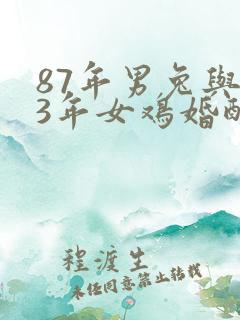 87年男兔与
3年女鸡婚
程渡生
未经同意禁止转载